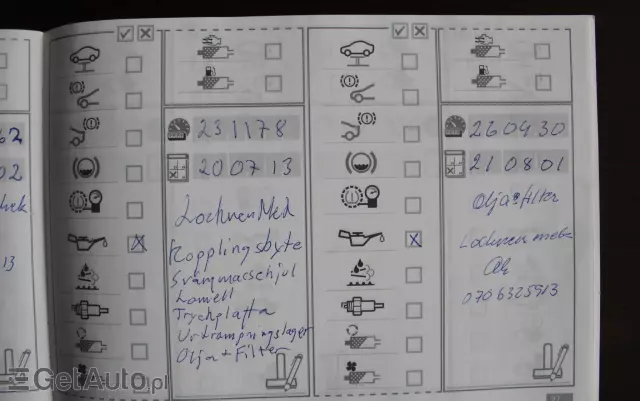 62
02
13
231178
200713
Lochnen Med
Kopplingsbyte
Svängmasschjul
Lamell
Tryckplatta
Urtrampningslager
Olja + Filter
260430
210801
Olja & filter
Lochnen
0706325913
GetAuto.pl